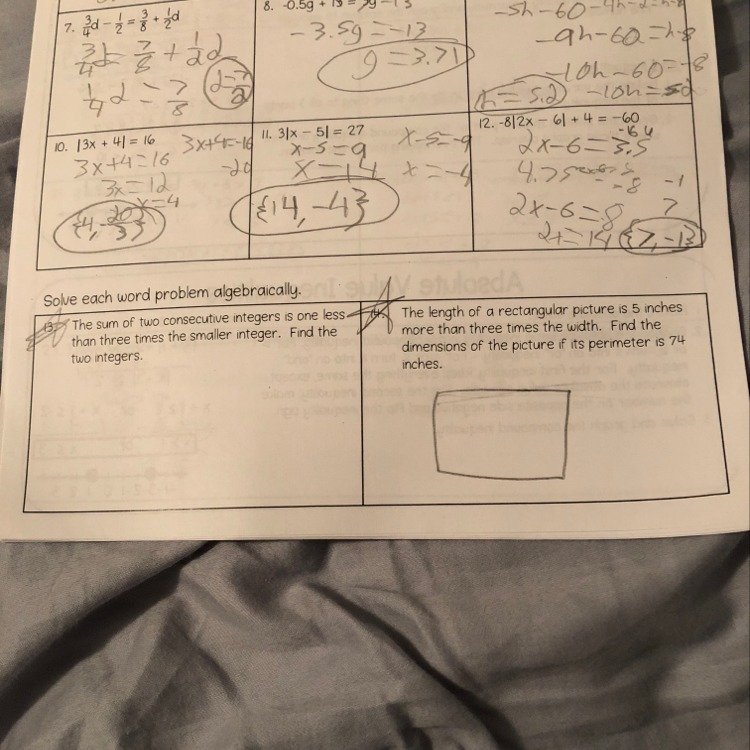 7. 3/4d − 1/2 = 3/8 + 1/2d
3/4d = 7/8 + 1/2d
1/4d = 7/8
d = 7/2
8. -0.5g + 13 = 3g − 13
−3.5g = −13
g = 3.71
−9h − 60 = h − 8
−10h − 60 = −8
−10h = 52
h = 5.2
10. |3x + 4| = 16
3x+4=-16
3x+4=16
-20
3x=12
x=4
{4, -20/3}
11. 3|x − 5| = 27
x−5=9
x−5=−9
x=14
x=−4
{14, −4}
12. -8|2x − 6| + 4 = −60
2x−6=
4.75
−8
−1
2x−6=8
7
2x=14
{7,−1}
Solve each word problem algebraically.
13. The sum of two consecutive integers is one less
than three times the smaller integer. Find the
two integers.
14. The length of a rectangular picture is 5 inches
more than three times the width. Find the
dimensions of the picture if its perimeter is 74
inches.